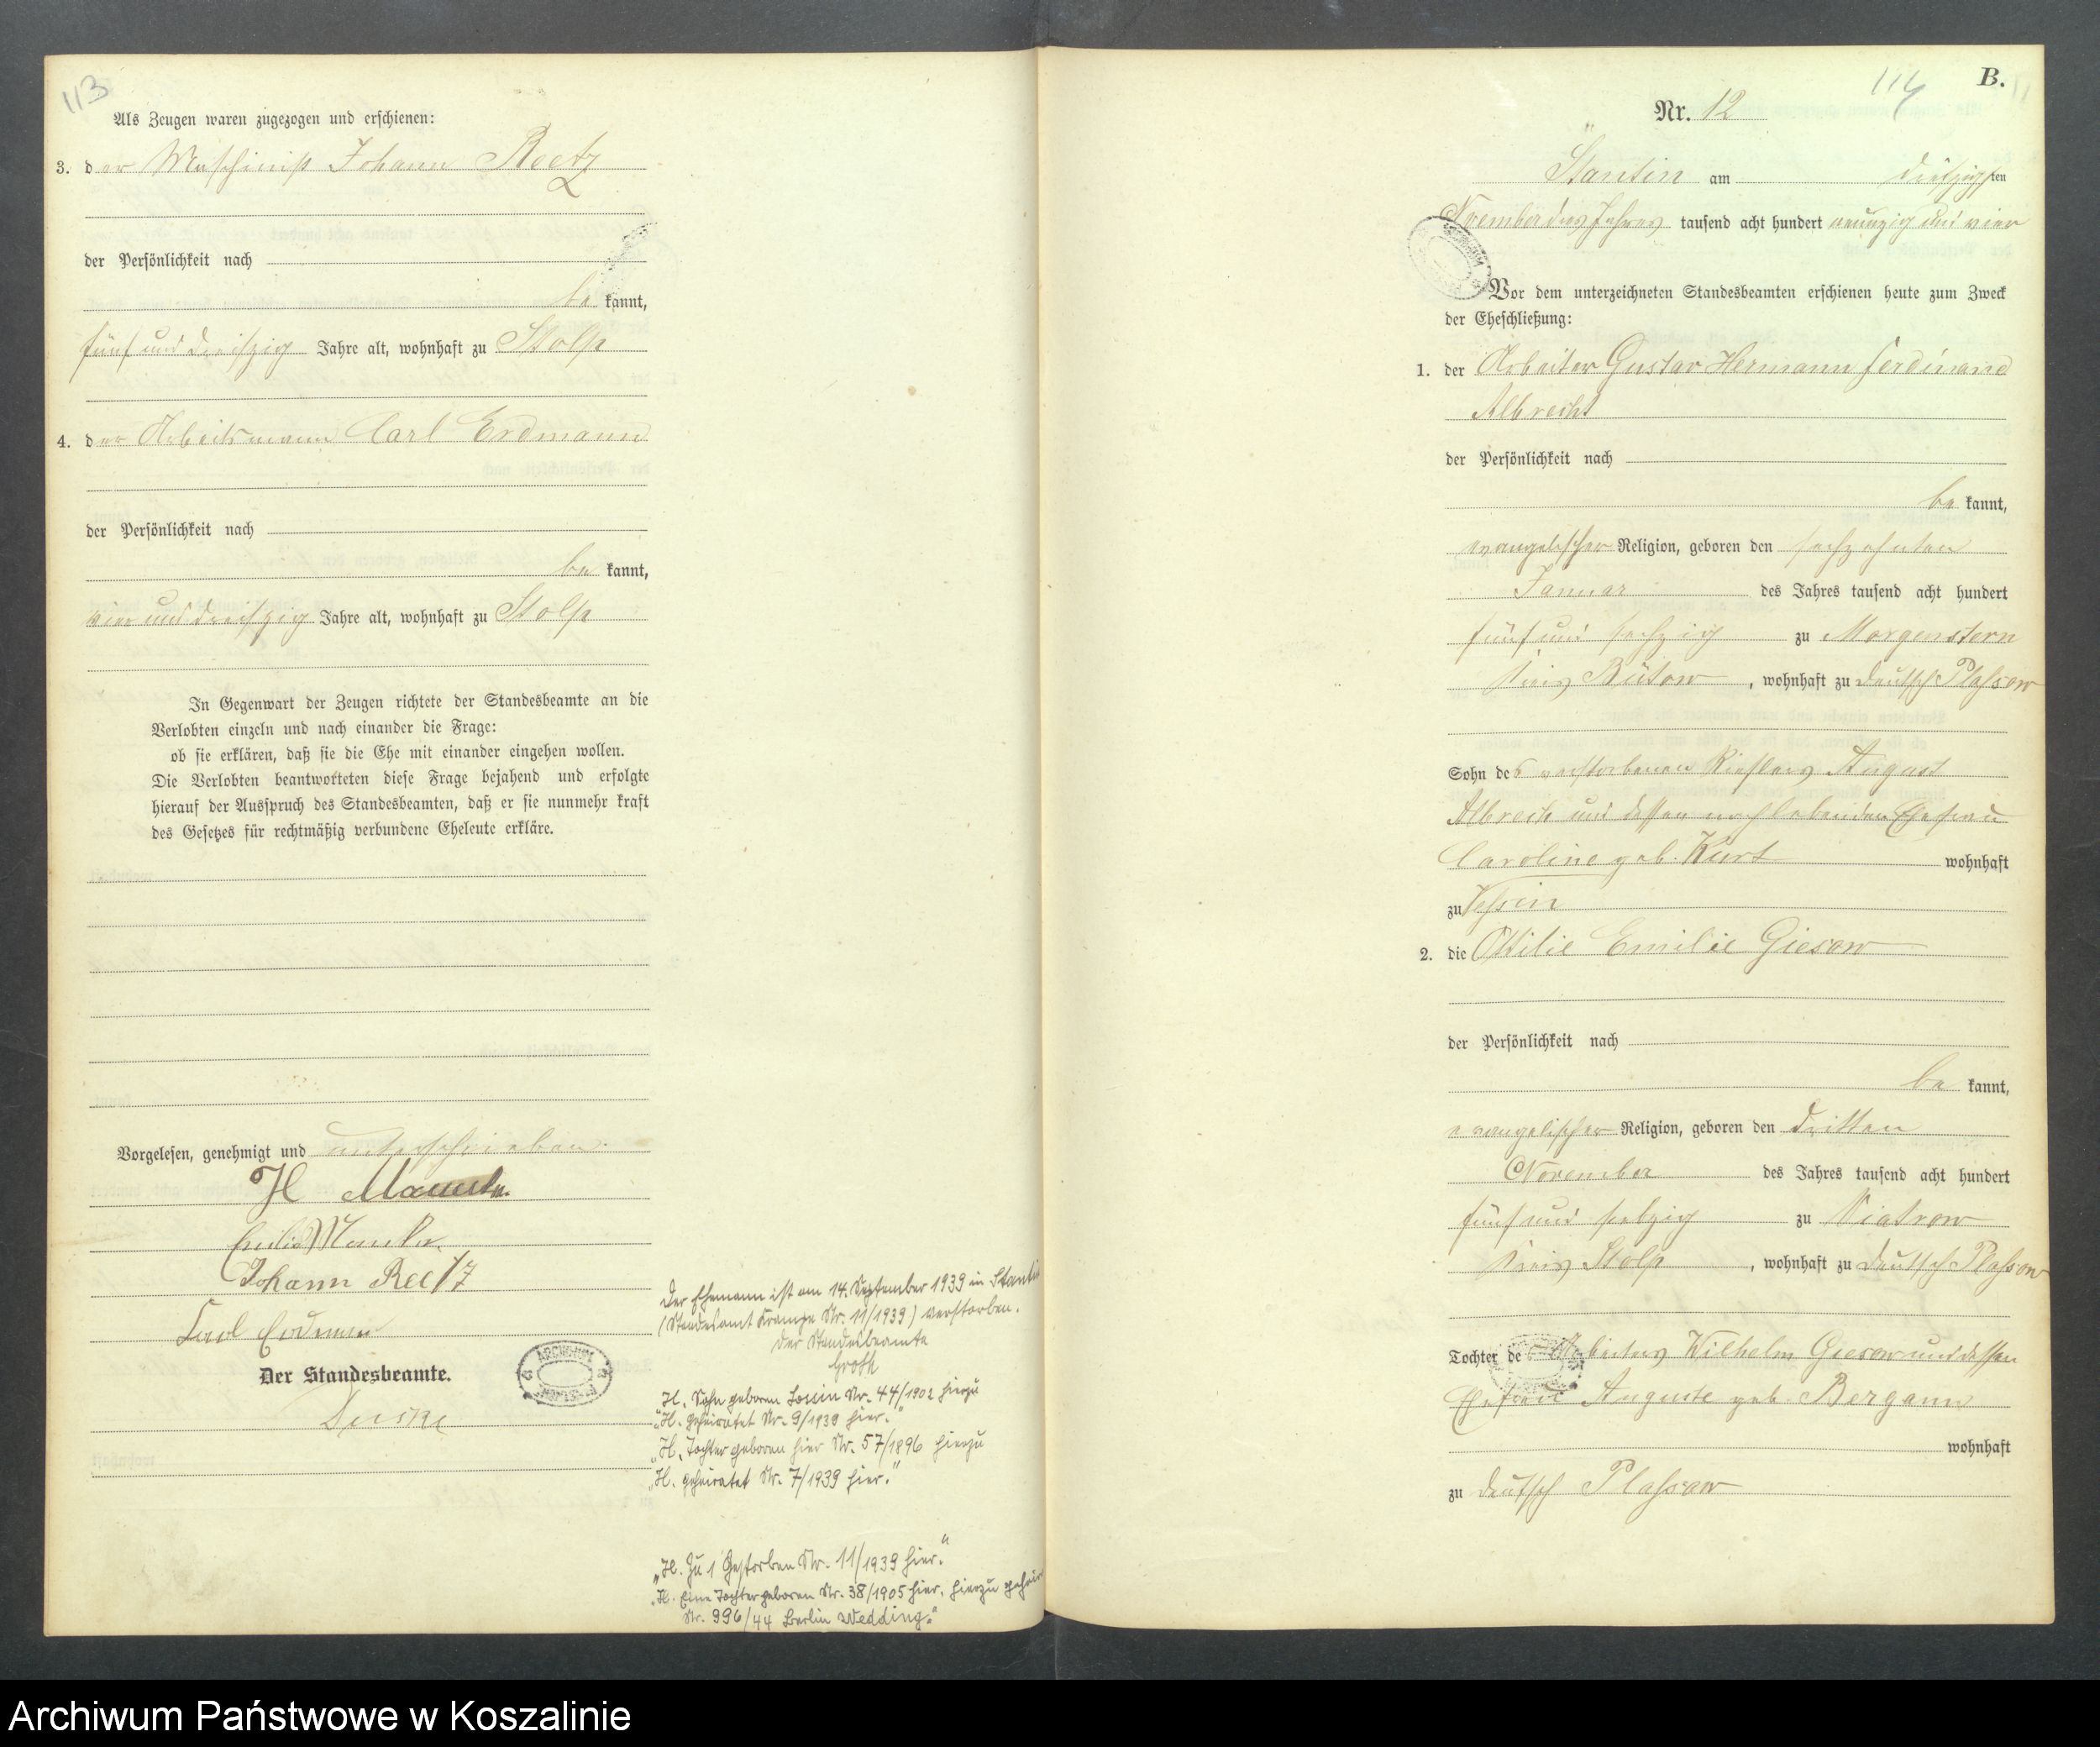 113
Als Zeugen waren zugezogen und erschienen:
3. der Maschinist Johann Reetz
der Persönlichkeit nach
be kannt,
fünf und dreißzig Jahre alt, wohnhaft zu Stolp
4. der Arbeitsmann Carl Erdmann
der Persönlichkeit nach
be kannt,
vier und dreißzig Jahre alt, wohnhaft zu Stolp
In Gegenwart der Zeugen richtete der Standesbeamte an die
Verlobten einzeln und nach einander die Frage:
ob sie erklären, daß sie die Ehe mit einander eingehen wollen.
Die Verlobten beantworteten diese Frage bejahend und erfolgte
hierauf der Ausspruch des Standesbeamten, daß er sie nunmehr kraft
des Gesetzes für rechtmäßig verbundene Eheleute erkläre.
Vorgelesen, genehmigt und unterschrieben.
H
Johann Reetz
Carl Erdmann
Der Standesbeamte.
ARCHIWUM
Der Ehemann ist am 14. September 1939 in Stantin
(Standesamt Krampe Nr. 11/1939) verstorben.
Der Standesbeamte
Groth
"H. Sohn geboren Nr. 44/1902 hierzu
"H. geheiratet Nr. 9/1939 hier."
"H. Tochter geboren hier Nr. 57/1896 hierzu
"H. geheiratet Nr. 7/1939 hier."
"H. Zu 1 Gestorben Nr. 11/1939 hier."
"H. Eine Tochter geboren Nr. 38/1905 hier, hierzu geheir
Nr. 996/44 Berlin Wedding."
114
B.
Nr. 12
Stantin am dreißzigsten
November des Jahres tausend acht hundert neunzig und vier
Vor dem unterzeichneten Standesbeamten erschienen heute zum Zweck
der Eheschließung:
1. der Arbeiter Gustav Hermann Ferdinand
Albrecht
der Persönlichkeit nach
be kannt,
evangelischer Religion, geboren den sechzehnten
Januar des Jahres tausend acht hundert
fünf und sechzig zu Morgenstern
Kreis Bütow, wohnhaft zu Deutsch Plassow
Sohn des verstorbenen August
Albrecht und dessen noch lebenden Ehefrau
Caroline geb. Kurt wohnhaft
zu Jassen
2. die Ottilie Emilie Giesow
der Persönlichkeit nach
be kannt,
evangelischer Religion, geboren den dritten
November des Jahres tausend acht hundert
fünf und siebzig zu Viatrow
Kreis Stolp, wohnhaft zu Deutsch Plassow
Tochter des Arbeiters Wilhelm Giesow und dessen
Ehefrau Auguste geb. Bergann
wohnhaft
zu Deutsch Plassow
Archiwum Państwowe w Koszalinie